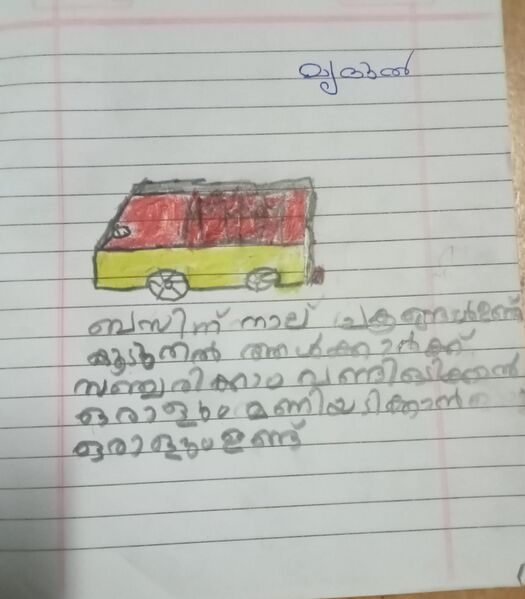 മൃദുൽ
ബസിന് നാല് ചക്രങ്ങൾഉണ്ട്
കൂടുതൽ ആൾക്കാർക്ക്
സഞ്ചരിക്കാം വണ്ടിഓടിക്കാൻ
ഒരാളും മണിയടിക്കാൻ
ഒരാളുംഉണ്ട്